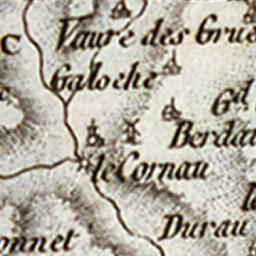 Vaure des Grue
C
Galoche
Gd
Berdau
le Cornau
Durau
onnet